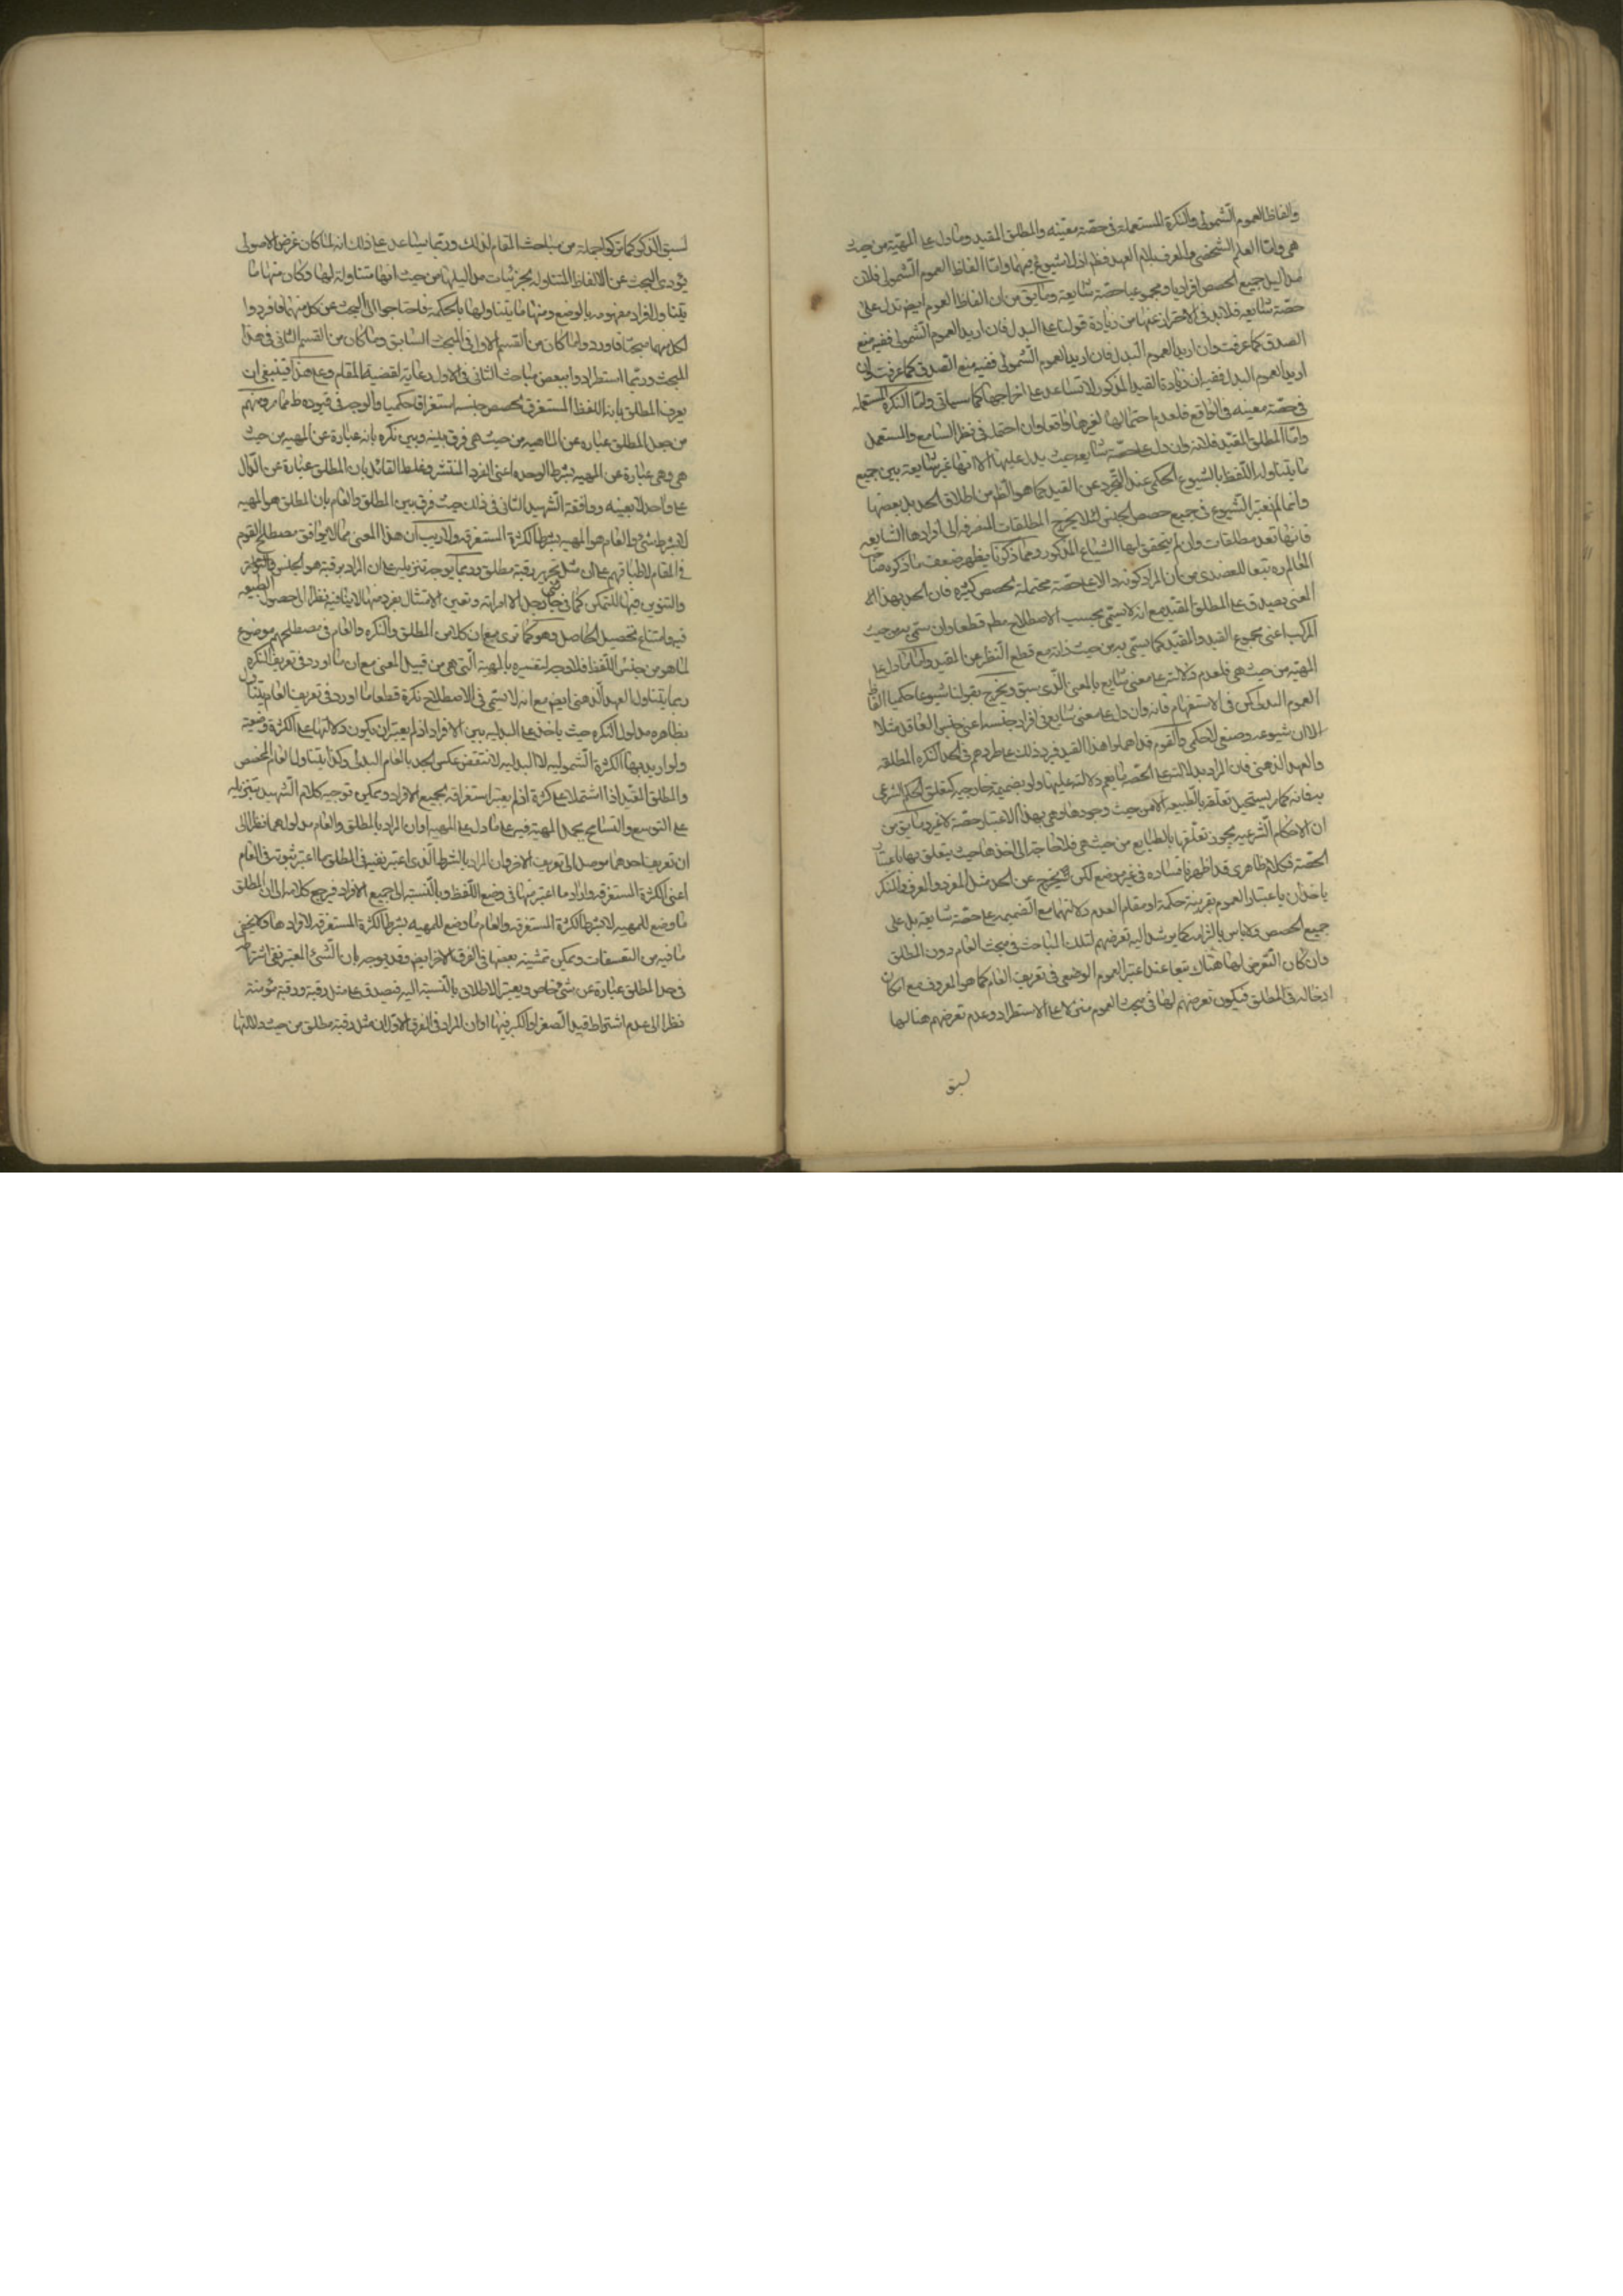 والفاظ العموم الشمولى والنكرة المستعملة فى حصّة معيّنه والمطلق المقيد وما دل على المهيّة من حيث
هى وامّا العلم الشخصى والمعرف بلام العهد فظ اذ لا شيوع فيهما وامّا الفاظ العموم الشمولى فلان
مداليل جميع الحصص افراديا ومجموعيا حصّة شايعة وما بق من ان الفاظ العموم ايضم تدل على
حصّة شايعه فلابد فى الاحتراز عنها من زيادة قولنا على البدل فان اريد العموم الشمولى ففيه منع
الصدق كما عرفت وان اريد العموم البدل فان اريد العموم الشمولى ففيه منع الصدق كما عرفت وان
اريد العموم البدل ففيه ان زيادة القيد المذكور لا تساعد على اخراجها كما سياتى وامّا النكرة المستعمله
فى حصّة معينه فى الواقع فلعدم احتمالها لغيرها واقعا وان احتمل فى نظر السامع والمستعمل
وامّا المطلق المقيد فلانه وان دل على حصّة شايعه حيث يدل عليها الا انها غير شايعة بين جميع
ما يتناوله اللفظ بالشيوع الحكمى عند التجرد عن القيد كما هو الظ من اطلاق الحد بل بعضها
وانما لم نعتبر الشيوع فى جميع حصص الجنس لئلا يخرج المطلقات المنصرفه الى افرادها الشايعه
فانها تعد مطلقات وان لم يتحقق لها الشياع المذكور ومما ذكرنا يظهر ضعف ما ذكره صاحب
المعالم ره تبعا للعضدى من ان المراد كونه دالا على حصّة محتملة لحصص كثيره فان الحد بهذا
المعنى يصدق على المطلق المقيد مع انه لا يسمّى بحسب الاصطلاح مطم قطعا وان سمّى به من حيث
المركب اعنى مجموع القيد والمقيد كما يسمّى به من حيث ذاته مع قطع النظر عن القيد وامّا ما دل على
المهيّة من حيث هى فلعدم دلالته على معنى شايع بالمعنى الّذى سبق ويخرج بقولنا شيوعا حكميا الفاظ
العموم البدلى كمن فى الاستفهام فانه وان دل على معنى شايع فى افراد جنسه اعنى جنس العاقل مثلا
الا ان شيوعه وضعى لا حكمى والقوم قد اهملوا هذا القيد فيرد ذلك على طردهم فى الحد النكره المطلقه
والعهد الذهنى فان المراد بدلالته على الحصّة ما يعم دلالته عليها ولو بضميمة خارجيه كتعلق الحكم الشرعى
به فانه كما يستحيل تعلقه بالطبيعه الا من حيث وجودها وهى بهذا الاعتبار حصّة لا فرد وما بق من
ان الاحكام الشرعيه يجوز تعلقها بالطبايع من حيث هى فلا حاجة الى اخذها حيث يتعلق بها باعتبار
الحصّة فكلام ظاهرى قد اظهرنا فساده فى غير موضع لكن يخرج عن الحد مثل المفرد والمعرف والمنكر
ياخذان باعتبار العموم بقرينة حكمة او مقام العدم دلالتهما مع الضميمه على حصّة شايعة بل على
جميع الحصص ولا باس بالزامه كما يرشد اليه تعرضهم لتلك المباحث فى مبحث العام دون المطلق
وان كان التعرض لها هناك تبعا عند اعتبر العموم الوضعى فى تعريف العام كما هو المعروف مع امكان
ادخاله فى المطلق فيكون تعرضهم لها فى مبحث العموم مبنى لا على الاستطراد وعدم تعرضهم هنا لها
لسبق
لسبق الذكر كما تركوا جملة من مباحث المقام لذلك وربّما يساعد على ذلك انه لما كان غرض الاصولى
يؤدى البحث عن الالفاظ المتناوله لجزئيات مداليلها من حيث انها متناولة لها وكان منها ما
يتناول افراد مفهومه بالوضع ومنها ما يتناولها بالحكمة فاحتاجوا الى البحث عن كل منهما فافردوا
لكل منهما مبحثا فاوردوا ما كان من القسم الاول فى المبحث السابق وما كان من القسم الثانى فى هذا
المبحث وربّما استطردوا ببعض مباحث الثانى فى الاول رعاية لقضية المقام وعلى هذا فينبغى ان
يعرف المطلق بانه اللفظ المستغرق لحصص جنسه استغراقا حكميا والوجه فى قيوده ظ مما مر ومنهم
من جعل المطلق عبارة عن الماهيه من حيث هى وفرق بينه وبين نكره بانه عبارة عن المهيه من حيث
هى وهى عبارة عن المهيه بشرط الوحده اعنى الفرد المنتشر وغلط القائل بان المطلق عبارة عن الدال
على واحد لا بعينه ووافقه الشهيد الثانى فى ذلك حيث فرق بين المطلق والعام بان المطلق هو المهيه
لا بشرط شئ والعام هو المهيه بشرط الكثرة المستغرقه ولا ريب ان هذا المعنى مما لا يوافق مصطلح القوم
فى المقام لاطباقهم على ان مثل تحرير رقبة مطلق وربما يوجه تنزيله على ان المراد برقبة هو الجنس
والتنوين فيها للتمكن كما فى جائنى رجل لا امراته وتعين الامتثال بفرد منها لا ينافيه نظرا الى حصول الطبيعه
فيه وامتناع تحصيل الحاصل وهو كما ترى مع ان كلا من المطلق والنكره والعام فى مصطلحهم موضوع
لما هو من جنس اللفظ فلا وجه لتفسيره بالمهيّة الّتى هى من قبيل المعنى مع ان ما اورد فى تعريف النكره
ربما يتناول العهد الذهنى ايضم مع انه لا يسمّى فى الاصطلاح نكرة قطعا وما اورد فى تعريف العام يتناول
بظاهره مدلول النكره حيث ياخذ على البدليه بين الافراد اذ لم يعتبر ان يكون دلالتها على الكثرة وضعية
ولو اريد بها الكثرة الشموليه لا البدليه لانتقض عكس الحد بالعام البدلى وكذا يتناول العام المخصص
والمطلق المقيد اذا اشتملا على كثرة اذ لم يعتبر استغراقه لجميع الافراد ويمكن توجيه كلام الشهيد بتنزيله
على التوسع والتسامح بحمل المهية فيه على ما دل على المهيه او ان المراد بالمطلق والعام مدلولهما نظرا الى
ان تعريف احدهما موصل الى تعريف الاخر وان المراد بالشرط الّذى اعتبر نفيه فى المطلق ما اعتبر ثبوته فى العام
اعنى الكثرة المستغرقه واراد ما اعتبر منها فى وضع اللفظ وبالنسبه الى جميع الافراد فيرجع كلامه الى ان المطلق
ما وضع للمهيه لا بشرط الكثرة المستغرقه والعام ما وضع للمهيه بشرط الكثرة المستغرقه لافرادها ولا يخفى
ما فيه من التعسفات ويمكن تمشيته بعضها فى الفرق الاخر ايضم وقد يوجه بان الشئ المعتبر نفى اشتراطه
فى حد المطلق عبارة عن شئ خاص ويعتبر الاطلاق بالنسبة اليه فيصدق على مثل رقبة ورقبة مؤمنة
نظرا الى عدم اشتراط قيد الصغر او الكبر فيها او ان المراد فى الفرق الاول ان مثل رقبة مطلق من حيث دلالتها